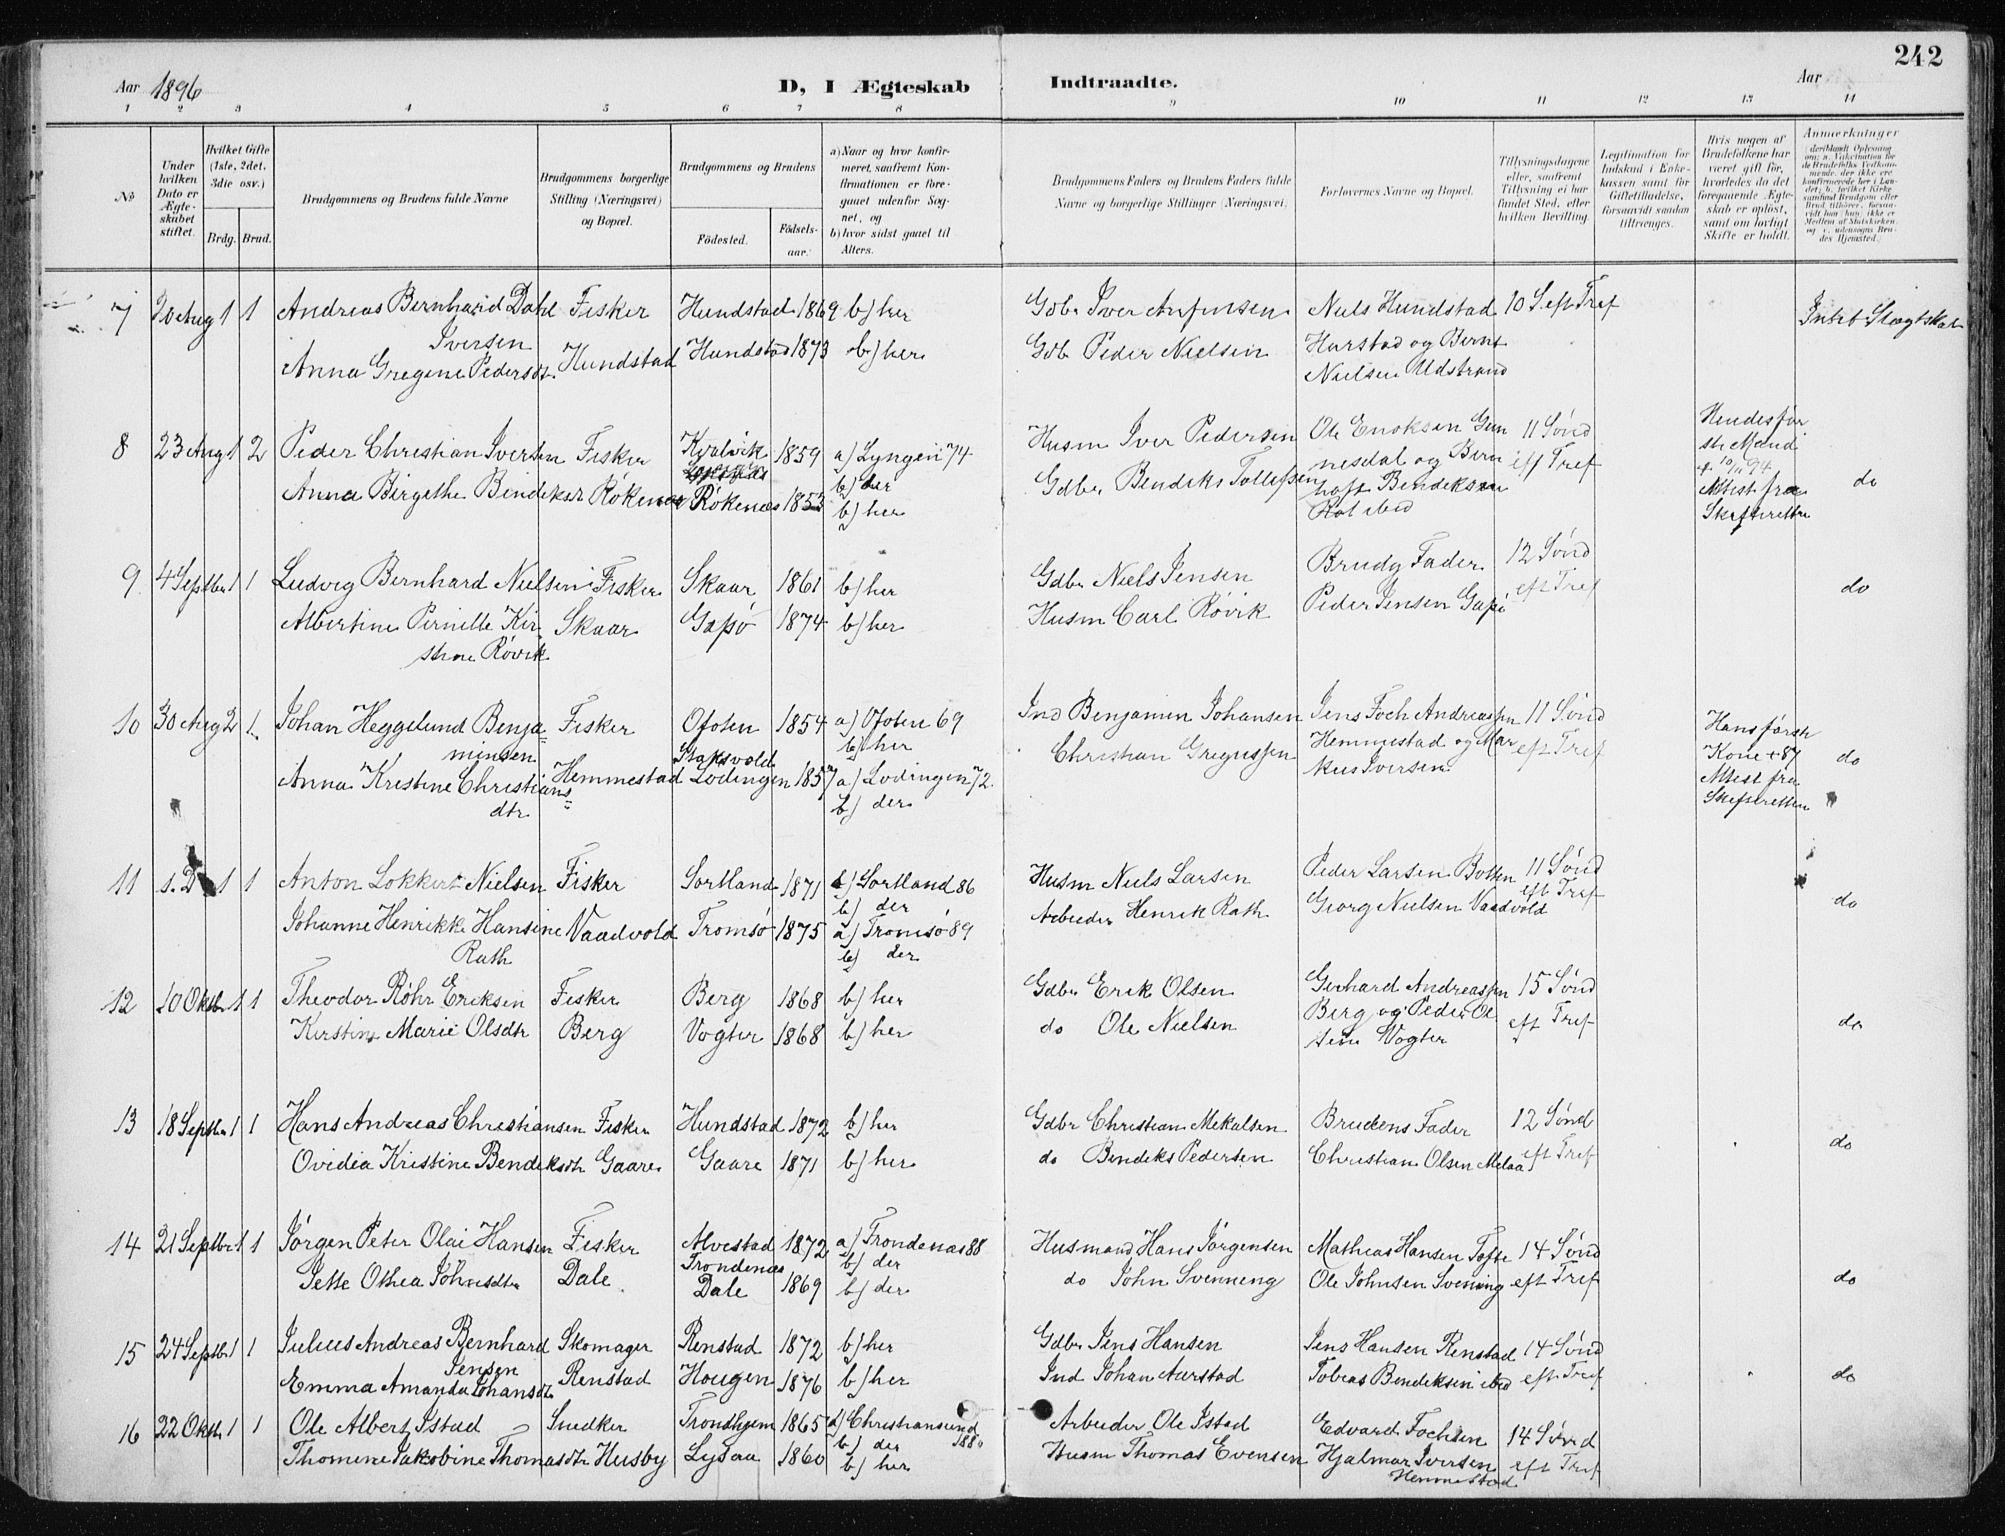 242
Aar 1896
D, I Ægteskab Indtraadte.
Aar
1 2 3 4 5 6 7 8 9 10 11 12 13 14
No
Under hvilken Dato er Ægteskabet stiftet.
Hvilket Gifte (1ste, 2det, 3die osv.)
Brdg. Brud.
Brudgommens og Brudens fulde Navne
Brudgommens borgerlige Stilling (Næringsvei) og Bopæl.
Brudgommens og Brudens
Fødested. Fødselsaar.
a) Naar og hvor konfirmeret, saafremt Konfirmationen er foregaaet udenfor Sognet, og
b) hvor sidst gaaet til Alters.
Brudgommens Faders og Brudens Faders fulde Navne og borgerlige Stillinger (Næringsvei).
Forlovernes Navne og Bopæl.
Tillysningsdagene eller, saafremt Tillysning ei har fundet Sted, efter hvilken Bevilling.
Legitimation for Indskud i Enkekassen samt for Giftetilladelse, forsaavidt saadan tiltrænges.
Hvis nogen af Brudefolkene har været gift før, hvorledes da det foregaaende Ægteskab er opløst, samt om lovligt Skifte er holdt.
Anmærkninger
7 20 Aug 1 1 Andreas Bernhard Dahl Fisker Hundstad 1869 b) her Gdbr Iver Anfinsen Niels Hundstad 10 S eft Tref Intet Slægtskab
Iversen Harstad og Bernt
Anna Gregine Pedersdt. Hundstad Hundstad 1873 b) her Gdb Peder Nielsen Nielsen Udstrand
8 23 Aug 1 2 Peder Christian Iversen Fisker Kjølvik 1859 a) Lyngen 74 Husm Iver Pedersen Ole Enoksen Gun 11 Sønd Hendes før
b) der nesdal og Bern eft Tref ste Mand
Anna Birgethe Bendiks Røkenæs Røkenæs 1853 b) her Gdbr Bendiks Tollefsen hoft Bendiksen Attest fra do
Skifteretten
9 4 Septbr 1 1 Ludvig Bernhard Nielsen Fisker Skaar 1861 b) her Gdbr Niels Jensen Brudg Fader 12 Sønd do
Albertine Pernille Kir Skaar Gapø 1874 b) her Husm Carl Røvik Peder Jensen Gapø eft Tref
stine Røvik
10 30 Aug 2 1 Johan Heggelund Benja Fisker Ofoten 1854 a) Ofoten 69 Ind Benjamin Johansen Jens Foch Andreassen 11 Sønd Hans første
minsen b) her Hemmestad og Mar eft Tref Kone + 87 do
Anna Kristine Christians Hemmestad Lødingen 1857 a) Lødingen 72 Christian Gregussen kus Iversen Attest fra
dtr b) der Skifteretten
11 s. D 1 1 Anton Lokkert Nielsen Fisker Sortland 1871 a) Sortland 86 Husm Niels Larsen Peder Larsen Botten 11 Sønd
b) der eft Tref do
Johanne Henrikke Hansine Vaadvold Tromsø 1875 a) Tromsø 89 Arbeider Henrik Rath Georg Nielsen Vaadvold
Rath b) der
12 10 Oktbr 1 1 Theodor Røhr Eriksen Fisker Berg 1868 b) her Gdbr Erik Olsen Gerhard Andreassen 15 Sønd
Berg og Peder Ol eft Tref do
Kirstine Marie Olsdtr Berg Vogter 1868 b) her do Ole Nielsen sen Vogter
13 18 Septbr 1 1 Hans Andreas Christiansen Fisker Hundstad 1872 b) her Gdbr Christian Mekalsen Brudens Fader 12 Sønd
Ovidia Kristine Bendiksdtr Gaare Gaare 1871 b) her do Bendiks Pedersen Christian Olsen Melaa eft Tref do
14 21 Septbr 1 1 Jørgen Peter Olai Hansen Fisker Alvestad 1872 a) Trondenæs 88 Husmand Hans Jørgensen Mathias Hansen Tofte 14 Sønd
Trondenæs b) der
Jette Othea Johnsdtr Dale Dale 1869 b) der do John Svenneng Ole Johnsen Svening eft Tref do
15 24 Septbr 1 1 Julius Andreas Bernhard Skomager Renstad 1872 b) her Gdbr Jens Hansen Jens Hansen Renstad 14 Sønd
Jensen
Emma Amanda Johansdt Renstad Hougen 1876 b) her Ind Johan Aurstad Tobias Bendiksen ibid eft Tref do
16 22 Oktb 1 1 Ole Albert Istad Snedker Trondhjem 1865 a) Christiansund Arbeider Ole Istad Edvard Fochsen 14 Sønd
b) der
Thomine Jakobine Thomasdtr Husby Lysaa 1860 b) her Husm Thomas Evensen Hjalmar Iversen eft Tref
Hemmestad